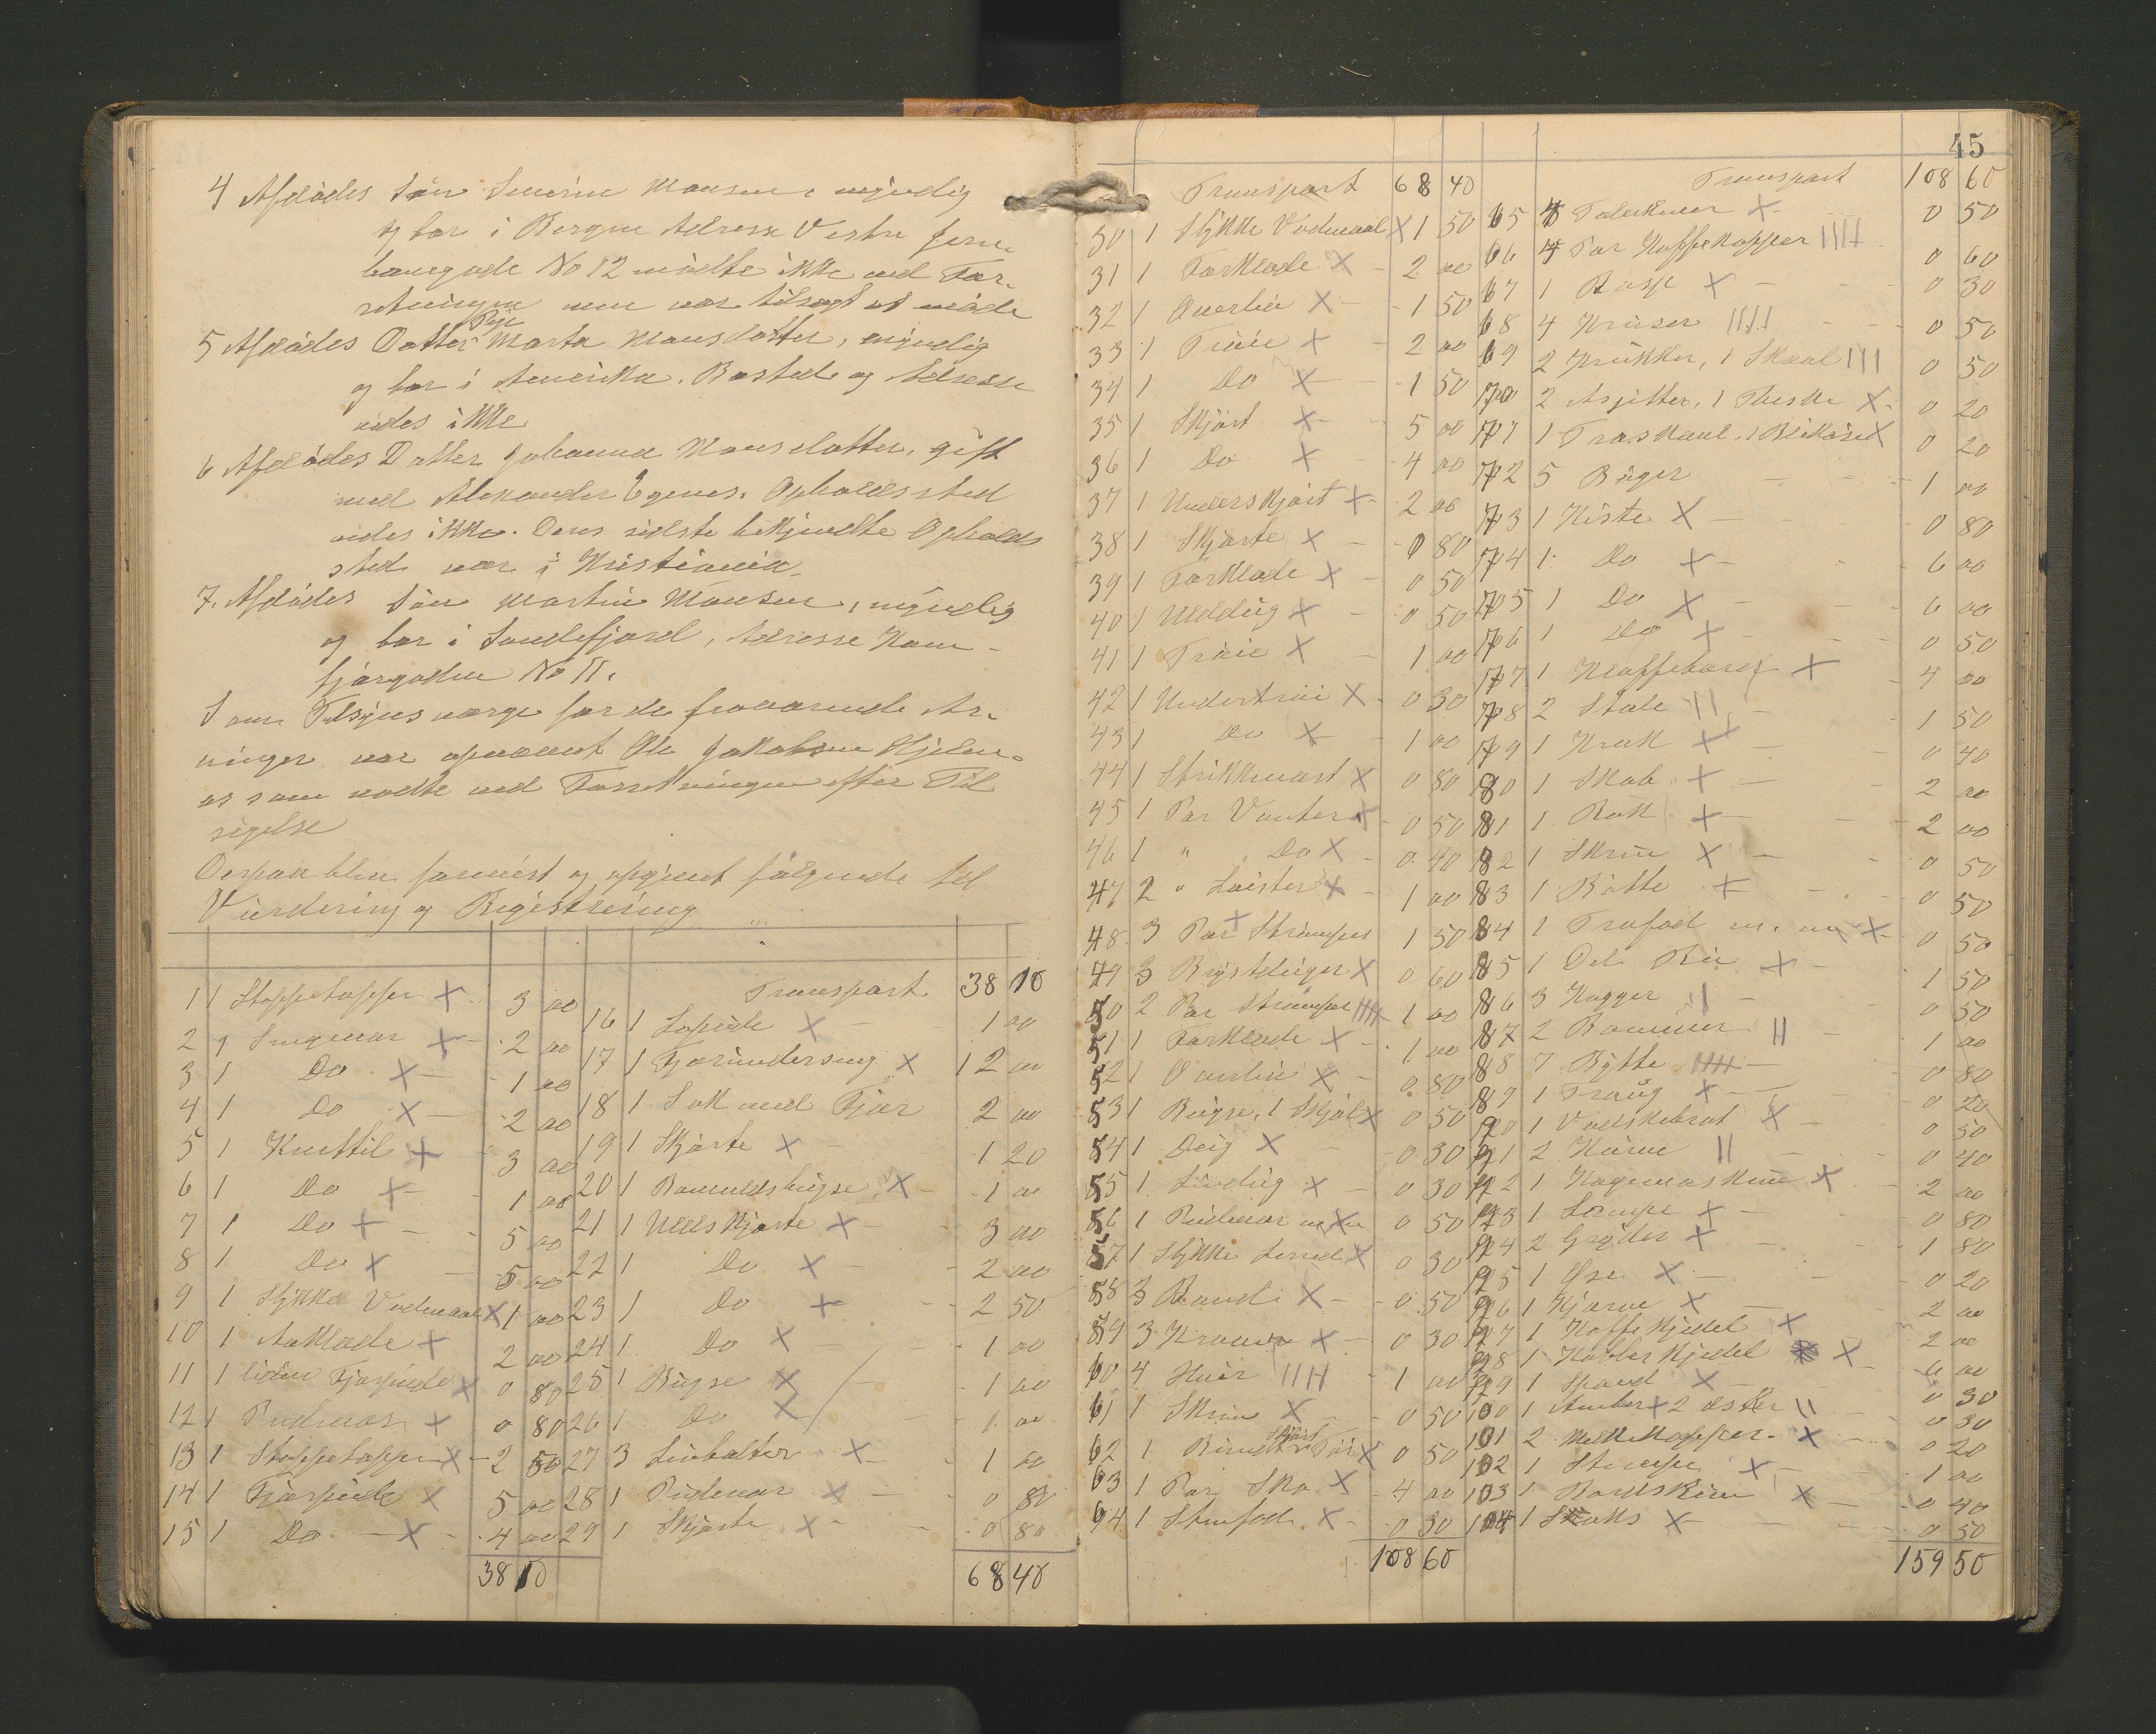 4 Afdødes Søn Severin Monsen, myndig
og bor i Bergen Adresse Vestre Jern-
banegade No 12 mødte ikke ved For-
retningen men var tilsagt at møde
5 Afdødes Datter Marta Monsdatter, myndig
og bor i Amerika. Bosted og Adresse
vides ikke
6 Afdødes Datter Johanna Monsdatter, gift
med Alexander Egenes. Opholdssted
vides ikke. Deres sidste bekjendte Opholds
sted var i Kristiania.
7. Afdødes Søn Martin Monsen, myndig
og bor i Sandefjord, Adresse Kam-
fjorgaden No 11.
Som Tilsynsværge for de fraværende Ar-
vinger var opnævnt Ole Jakobsen Hjelm-
os som mødte ved Forretningen efter Til
sigelse
Derpaa blev forevist og opgivet følgende til
Vurdering og Registrering
1 1 Stoppetæppe X 3 00
2 1 Sengevar X 2 00
3 1 Do X 1 00
4 1 Do X 2 00
5 1 Knuttil X 3 00
6 1 Do X 1 00
7 1 Do X 5 00
8 1 Do X 5 00
9 1 Stykke Vadmaal X 1 00
10 1 Aaklæde X 2 00
11 1 liden Fjærpude X 0 80
12 1 Pudevar X 0 80
13 1 Stoppetæppe X 2 50
14 1 Fjærpude X 5 00
15 1 Do X 4 00
38 10
Transport 38 10
16 1 Lopude X 1 00
17 1 Fjærunderseng X 12 00
18 1 Sæk med Fjær 2 00
19 1 Skjorte X 1 20
20 1 Bomuldsbugse X 1 00
21 1 Uldskjorte X 3 00
22 1 Do X 2 00
23 1 Do X 2 50
24 1 Do X 1 00
25 1 Bugse X 1 00
26 1 Do X 1 00
27 3 X 1 00
28 1 Pudevar X 0 80
29 1 Skjorte X 0 80
68 40
45
Transport 68 40
30 1 Stykke Vadmaal X 1 50
31 1 Forklæde X 2 00
32 1 Overliv X 1 50
33 1 Trøie X 2 00
34 1 Do X 1 50
35 1 Skjørt X 5 00
36 1 Do X 4 00
37 1 Underskjørt X 2 00
38 1 Skjorte X 0 80
39 1 Forklæde X 0 50
40 1 Ulddug X 0 50
41 1 Trøie X 1 00
42 1 Undertrøie X 0 30
43 1 Do X 1 00
44 1 X 0 80
45 1 Par Vanter X 0 50
46 1 " Do X 0 40
47 2 " Leister X 1 00
48 3 Par Strømper X 1 50
49 3 Brystduger X 0 60
50 2 Par Strømper 1 00
51 1 Forklæde X 1 00
52 1 Overliv X 0 80
53 1 Bugse, 1 X 0 50
54 1 Dug X 0 30
55 1 Lindug X 0 30
56 1 Pudevar X 0 50
57 1 Stykke Lerred X 0 30
58 3 Baand X 0 50
59 3 Kraver X 0 30
60 4 Huer IIII 1 00
61 1 Skrin X 0 50
62 1 X 0 50
63 1 Par Sko X 4 00
64 1 Stenfad X 0 30
108 60
Transport 108 60
65 4 Talerkner X 0 50
66 4 Par Kaffekopper IIII 0 60
67 1 Rasp X 0 30
68 4 Kruser IIII 0 50
69 2 Krukker, 1 Skaal III 0 50
70 2 Asjetter, 1 Flaske X 0 20
71 1 Træskaal, 1 X 0 20
72 5 Bøger 1 00
73 1 Kiste X 0 80
74 1 Do X 6 00
75 1 Do X 6 00
76 1 Do X 0 50
77 1 Klaffebord X 4 00
78 2 Stole II 1 50
79 1 Krak X 0 40
80 1 Skab X 2 00
81 1 Rok X 2 00
82 1 Skrin X 0 50
83 1 Bøtte X 0 50
84 1 Træfad m. m. X 0 50
85 1 Del X 1 50
86 3 Kagger 0 50
87 2 Rammer II 1 00
88 7 Bytte 0 80
89 1 Traug X 0 20
90 1 Vadskebræt X 0 50
91 2 Kurve II 0 40
92 1 X 2 00
93 1 Lampe X 0 80
94 2 Gryder X 1 80
95 1 Øse X 0 20
96 1 Kjærne X 2 00
97 1 Kaffekjedel X 2 00
98 1 Kobberkjedel X 6 00
99 1 Spand X 0 30
100 1 Amber X 2 Æsker II 0 30
101 2 Melkekopper. X 0 20
102 1 Stampe X 1 00
103 1 X 0 40
104 1 X 0 50
159 50